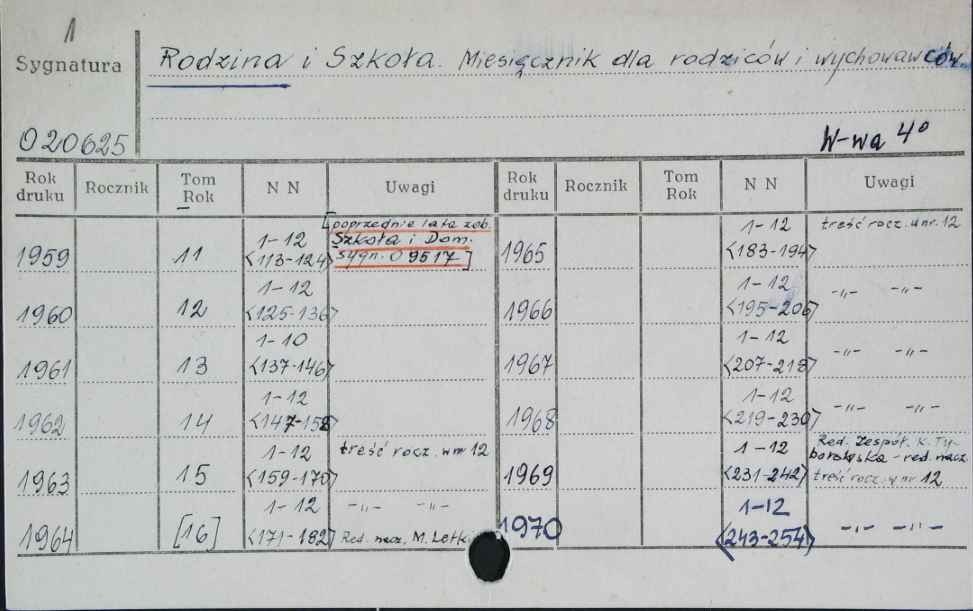 1
Sygnatura
Rodzina i Szkoła. Miesięcznik dla rodziców i wychowawców.
O 20625
W-wa 4°
Rok druku Rocznik Tom Rok N N Uwagi Rok druku Rocznik Tom Rok N N Uwagi
[poprzednie lata zob.
1959 11 1-12 Szkoła i Dom. 1965 1-12 treść rocz. w nr. 12
<113-124> sygn. O 9517] <183-194>
1960 12 1-12 1966 1-12 -„- -„-
<125-136> <195-206>
1961 13 1-10 1967 1-12 -„- -„-
<137-146> <207-218>
1962 14 1-12 1968 1-12 -„- -„-
<147-158> <219-230>
1963 15 1-12 treść rocz. w nr 12 1969 1-12 Red. Zespół. K. Ty-
<159-170> <231-242> - red. nacz.
treść rocz. w nr 12
1964 [16] 1-12 -„- -„- 1970 1-12 -„- -„-
<171-182> Red. nacz. M. <243-254>